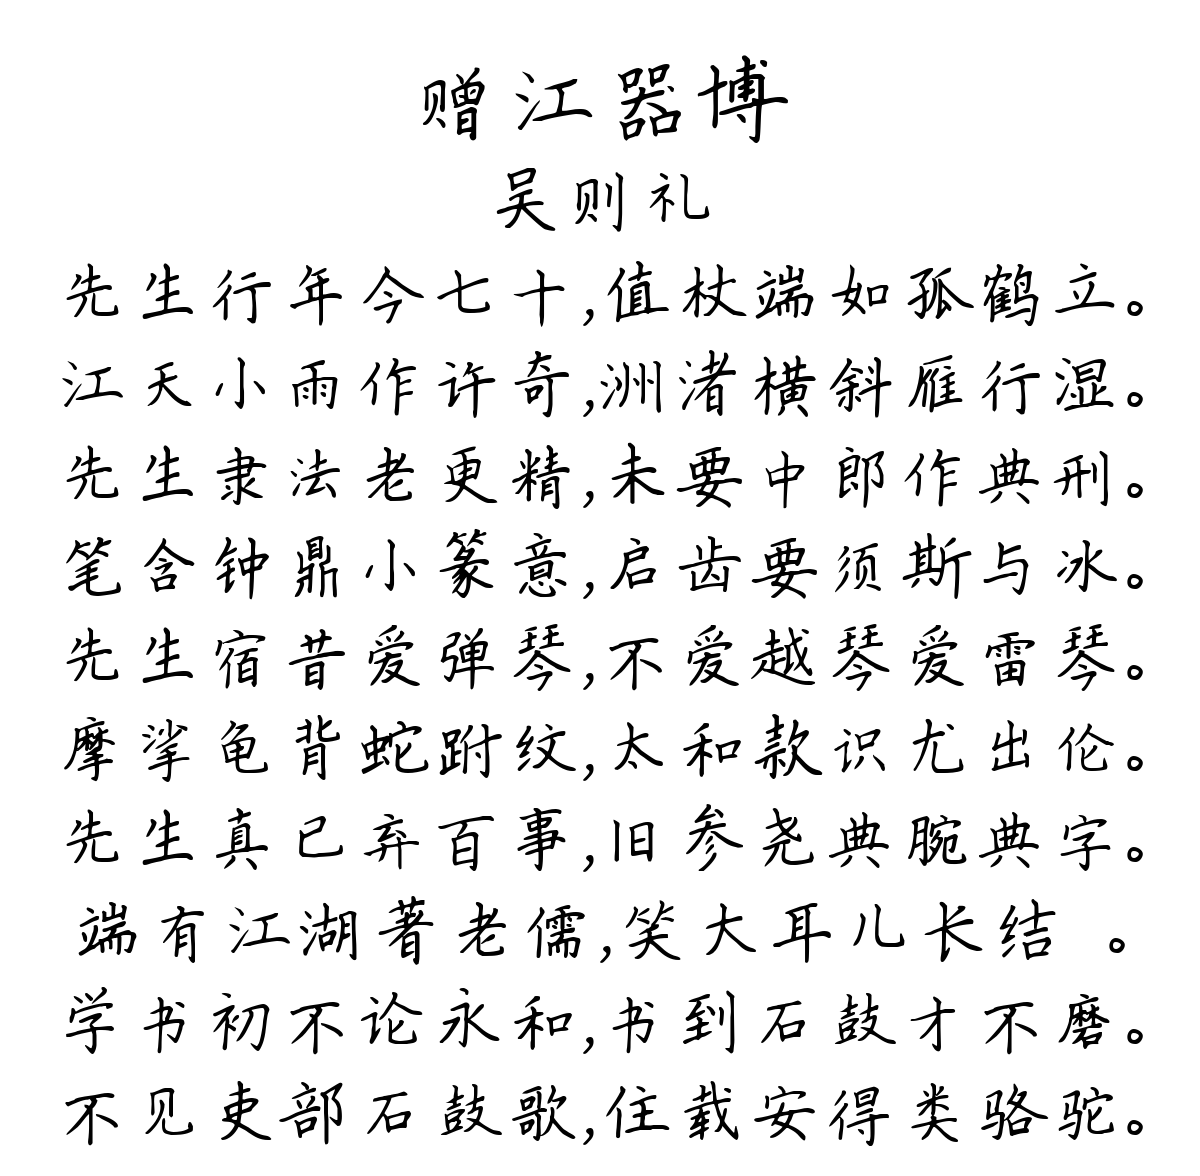 赠江器博
吴则礼
先生行年今七十,值杖端如孤鹤立。
江天小雨作许奇,洲渚横斜雁行湿。
先生隶法老更精,未要中郎作典刑。
笔含钟鼎小篆意,启齿要须斯与冰。
先生宿昔爱弹琴,不爱越琴爱雷琴。
摩挲龟背蛇跗纹,太和款识尤出伦。
先生真已弃百事,旧参尧典腕典字。
端有江湖著老儒,笑大耳儿长结 。
学书初不论永和,书到石鼓才不磨。
不见吏部石鼓歌,住载安得类骆驼。